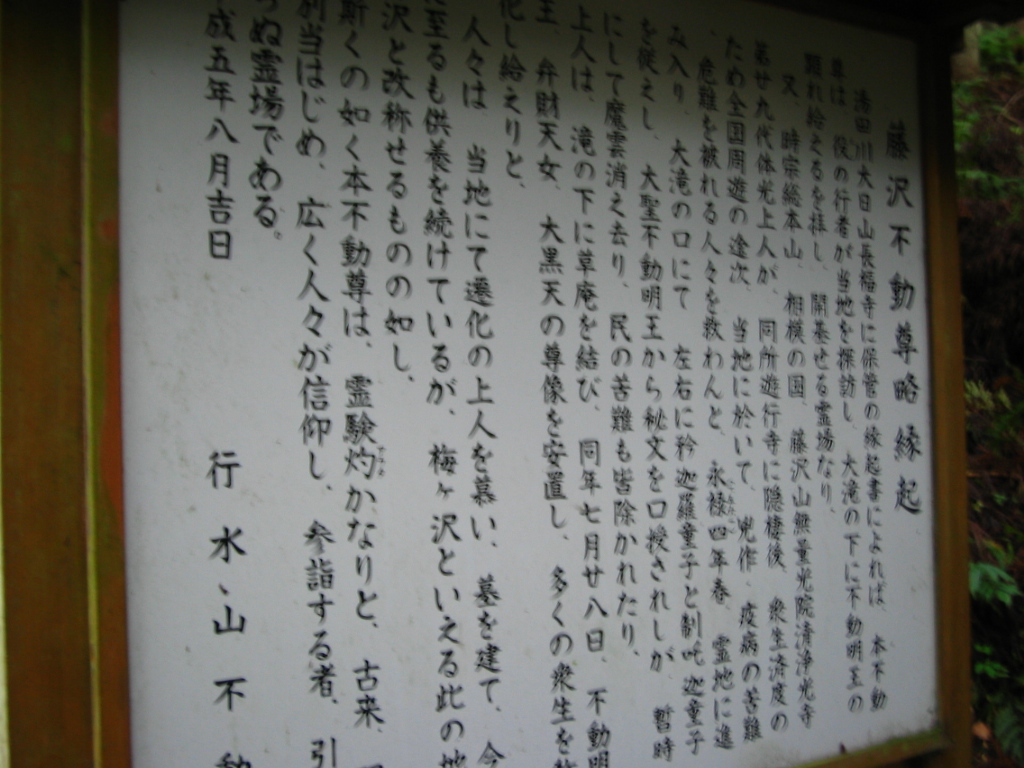 藤沢不動尊略縁起
滝田川大日山長福寺に保管の縁起書によれば、本不動
尊は、役の行者が当地を探訪し、大滝の下に不動明王の
顕れ給えるを拝し、開基せる霊場なり、
又、時宗総本山、相模の国、藤沢山無量光院清浄光寺
第廿九代体光上人が、同所遊行寺に隠棲後、衆生済度の
ため全国周遊の途次、当地に於いて、兇作、疫病の苦難
、危難を被れる人々を救わんと、永禄四年春、霊地に進
み入り、大滝の口にて、左右に矜迦羅童子と制吒迦童子
を従えし、大聖不動明王から秘文を口授されしが、暫時
にして魔雲消え去り、民の苦難も皆除かれたり、
上人は、滝の下に草庵を結び、同年七月廿八日、不動明
王、弁財天女、大黒天の尊像を安置し、多くの衆生を
化し給えりと、
人々は、当地にて遷化の上人を慕い、墓を建て、今
に至るも供養を続けているが、梅ヶ沢といえる此の地
沢と改称せるものの如し、
斯くの如く本不動尊は、霊験灼かなりと、古来、
別当はじめ、広く人々が信仰し、参詣する者、引
らぬ霊場である。
成五年八月吉日 行水、山不動